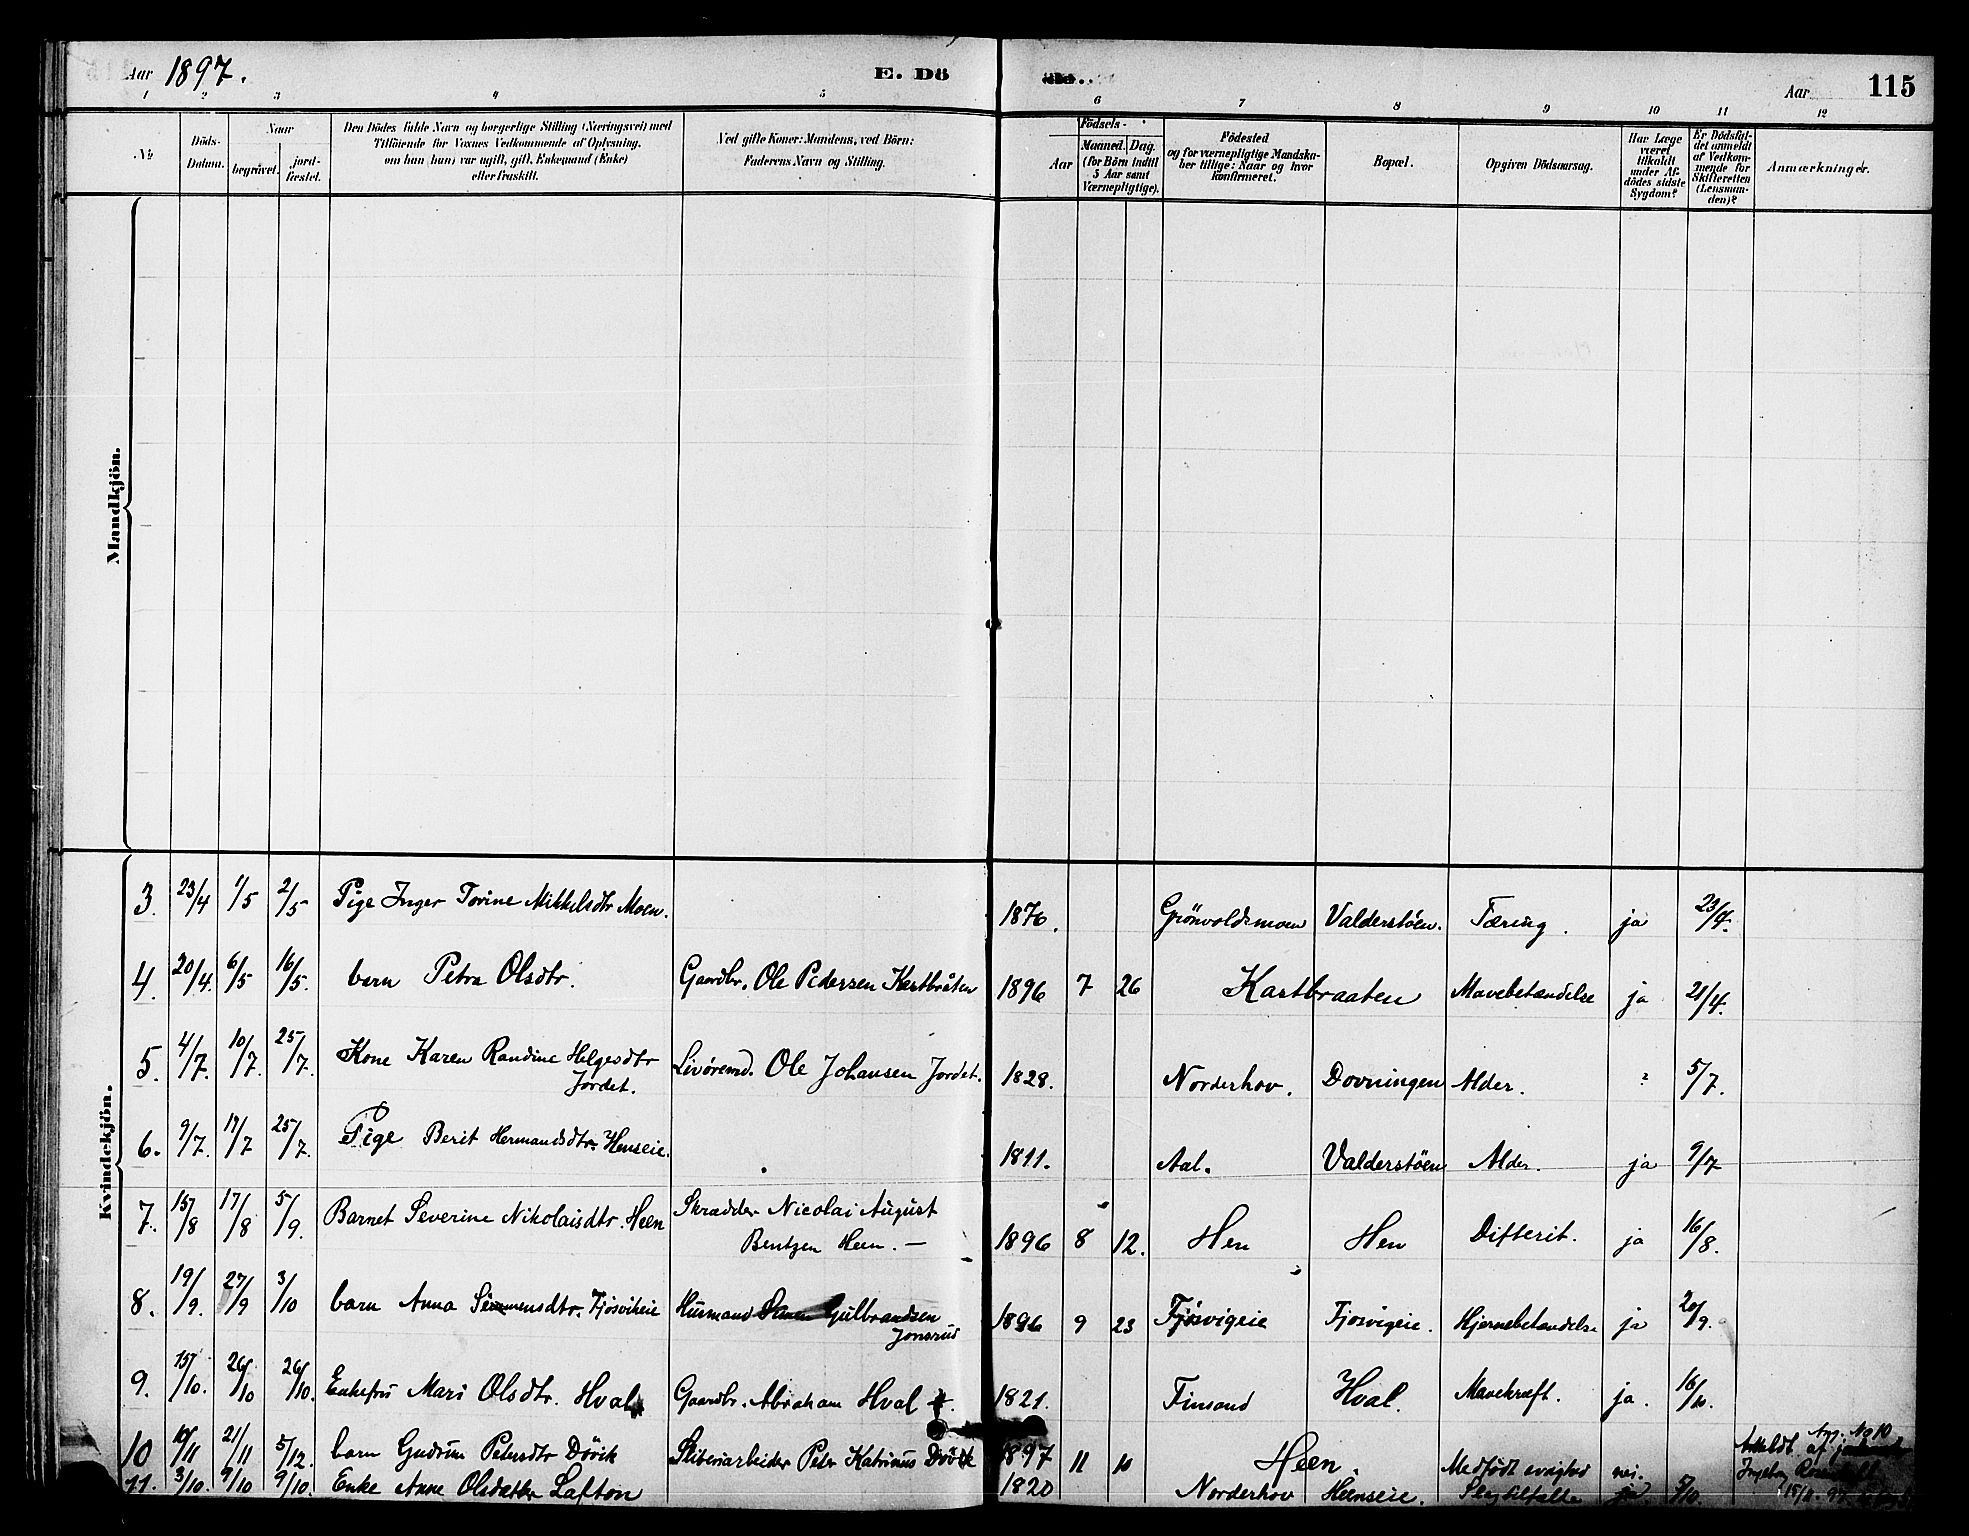 Aar 1897. E. Dö
Aar 115
1 2 3 4 5 6 7 8 9 10 11 12
No
Döds-Datum.
Naar
begravet.
jord-fæstet.
Den Dödes fulde Navn og borgerlige Stilling (Næringsvei) med
Tilföiende for Voxnes Vedkommende af Oplysning,
om han (hun) var ugift, gift, Enkemand (Enke)
eller fraskilt.
Ved gifte Koner: Mandens, ved Börn:
Faderens Navn og Stilling.
Födsels-
Aar
Maaned. Dag.
(for Börn indtil
5 Aar samt
Værnepligtige).
Födested
og for værnepligtige Mandska-
ber tillige: Naar og hvor
konfirmeret.
Bopæl.
Opgiven Dödsaarsag.
Har Læge
været
tilkaldt
under Af-
dödes sidste
Sygdom?
Er Dödsfal-
det anmeldt
af Vedkom-
mende for
Skifteretten
(Lensman-
den)?
Anmærkninger.
Mandkjön.
Kvindekjön.
3. 23/4 1/5 2/5 Pige Inger Torine Mikkelsdtr Moen. 1876. Grönvoldsmoen Valderstöen. Tæring. ja 23/4.
4. 20/4. 6/5 16/5. barn Petra Olsdtr. Gaardbr. Ole Pedersen Kastbråten 1896 7 26 Kastbraaten Mavebetændelse ja 21/4.
5. 4/7. 10/7. 25/7. Kone Karen Randine Helgesdtr
Jordet. Livöremd. Ole Johansen Jordet. 1828. Norderhov. Dovningen Alder. ? 5/7.
6. 9/7. 17/7 25/7. Pige Berit Hermandsdtr. Henseie. 1811. Aal. Valderstöen Alder. ja 9/7
7. 15/8 17/8 5/9. Barnet Severine Nikolaisdtr. Heen Skrædder Nicolai August
Bentzen Heen. — 1896 8 12. Hen Hen Difterit. ja 16/8.
8. 19/9. 27/9 3/10 barn Anna Simensdtr. Fjösvikeie Husmand Gulbrandsen
Jonsrud 1896 9 23 Fjösvigeie Fjösvigeie. Hjernebetændelse ja 20/9.
9. 15/10. 26/10 26/10. Enkefru Mari Olsdtr. Hval Gaardbr. Abraham Hval †. 1821. Finsand Hval. Mavekræft. ja. 16/10.
10 10/11 21/11 5/12. barn Gudrun Petersdtr Dövik Sliberiarbeider Peter Katrinus Dövik 1897 11 10 Heen. Medfödt svaghed nei. Ang. No 10
11. 3/10. 9/10 9/10. Enke Anne Olsdatter Lafton 1820 Norderhov Heenseie. ja 5/10.